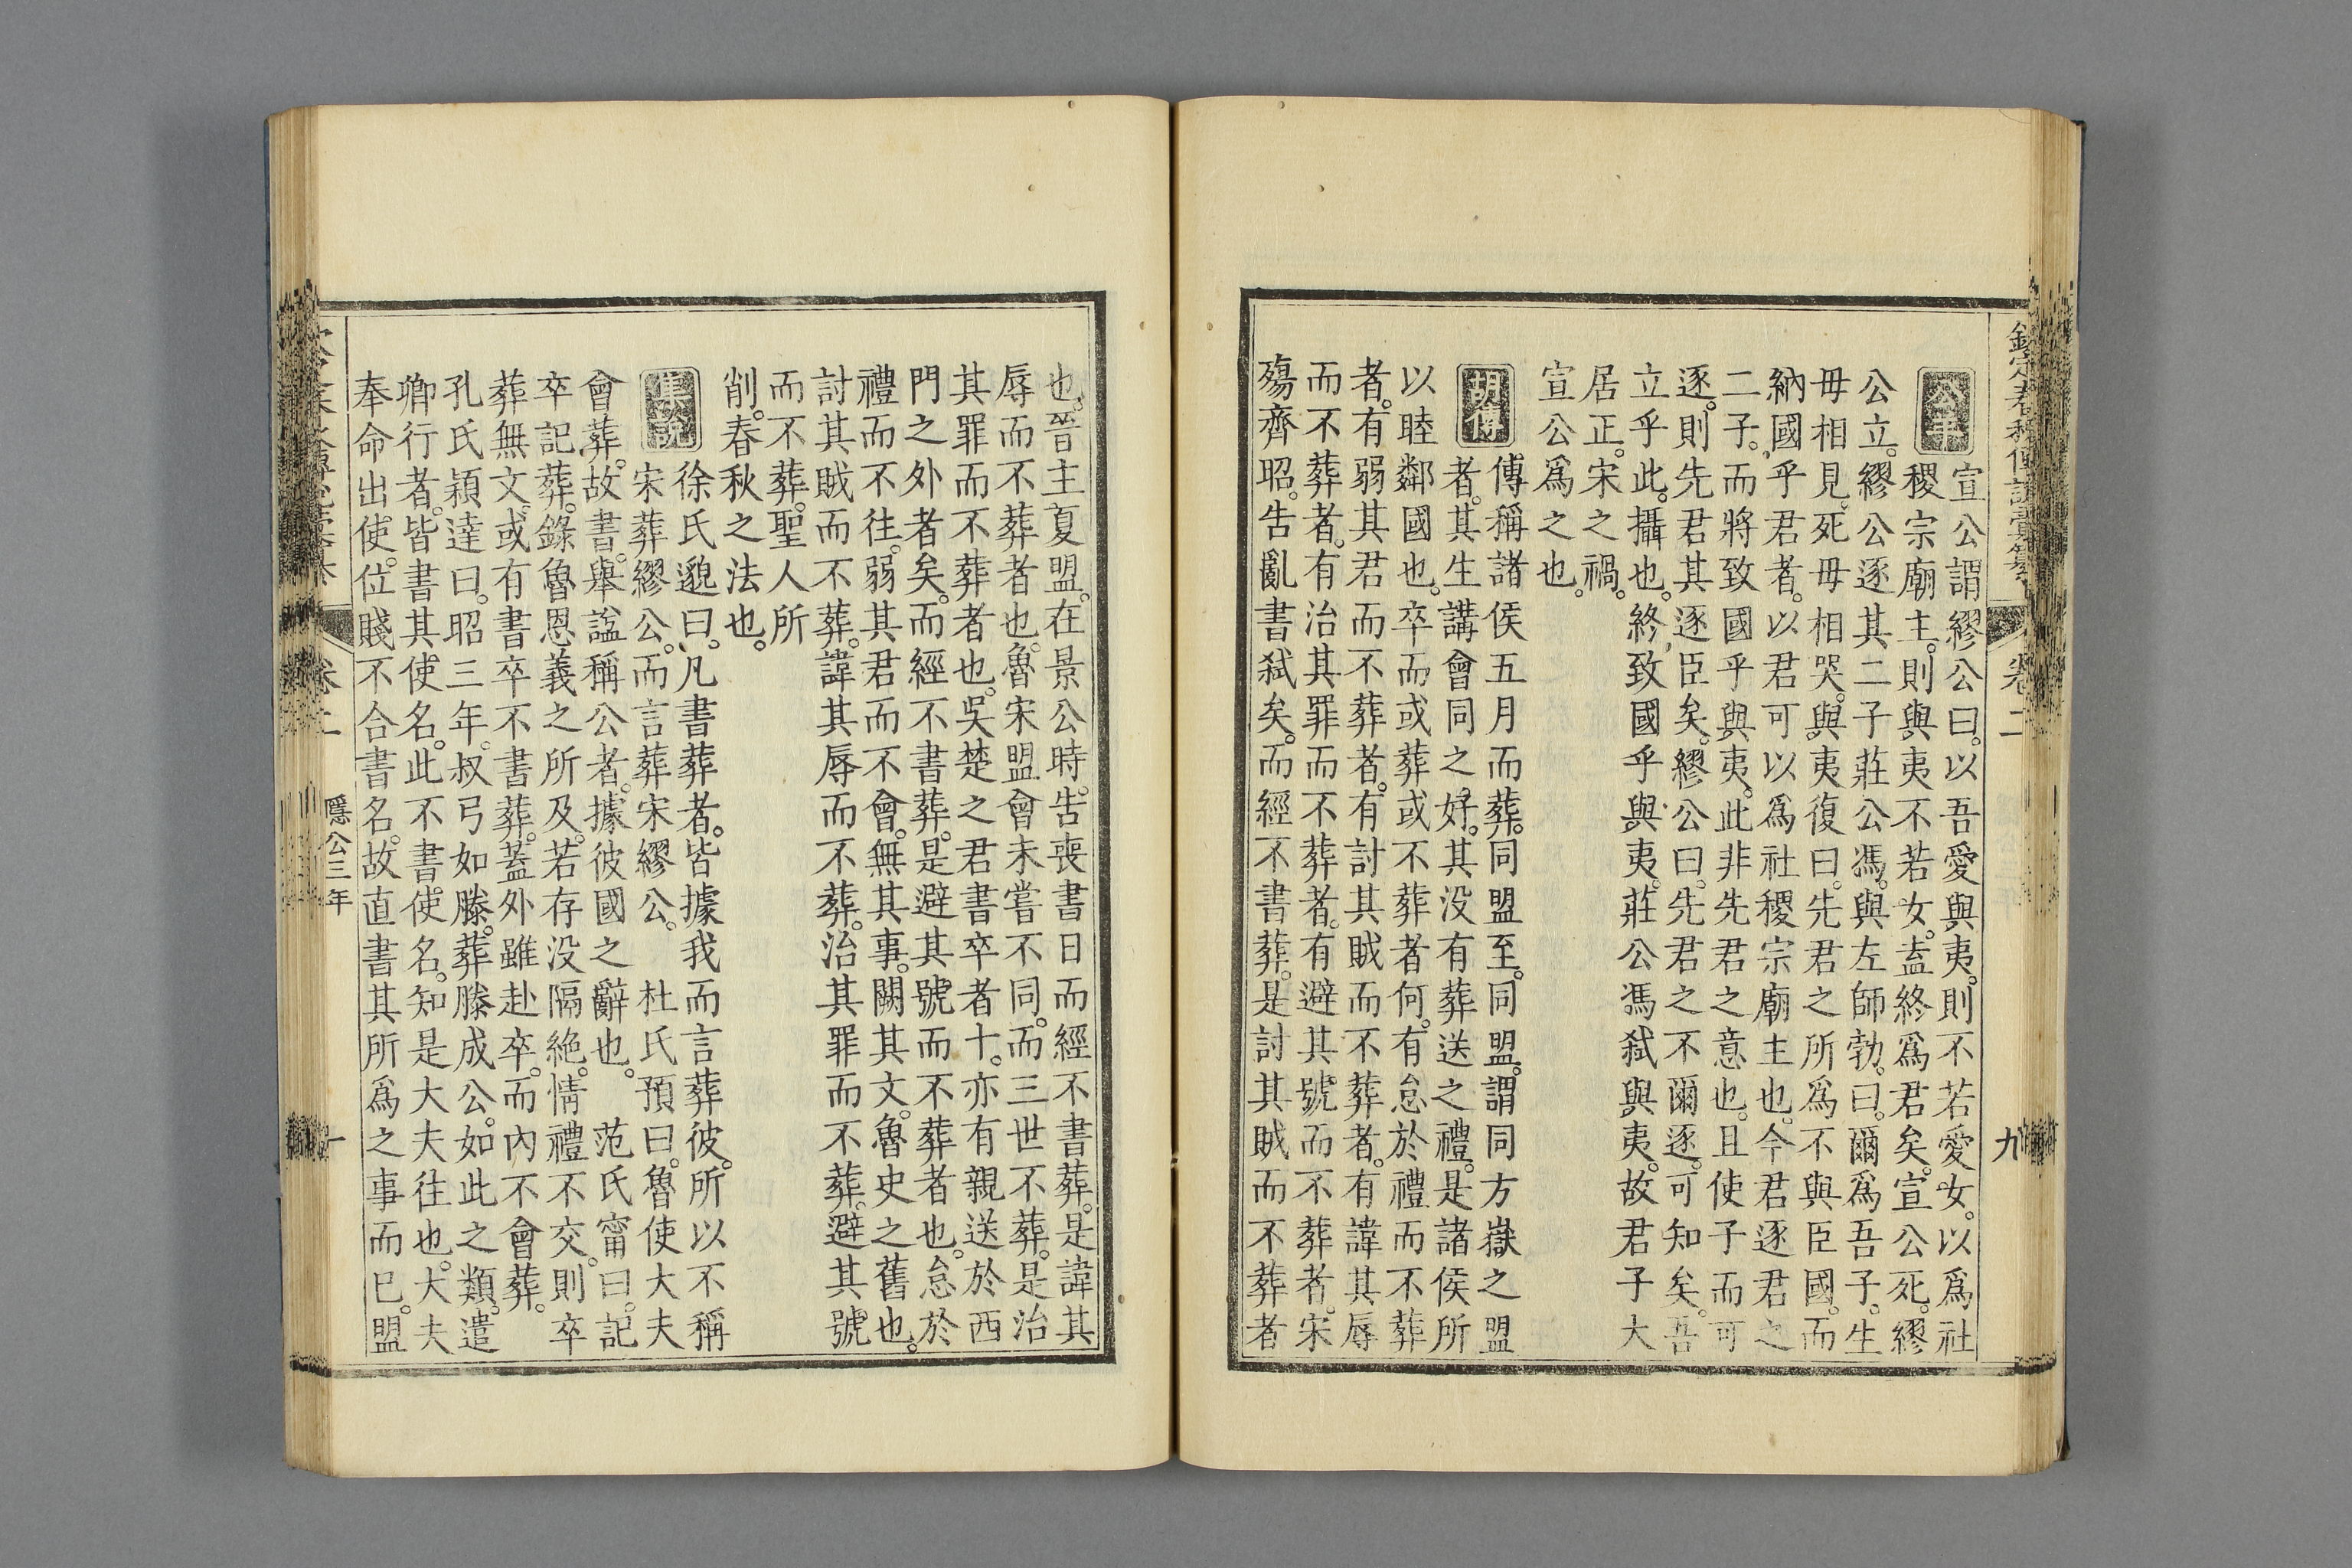 欽定春秋傳說彙纂
卷二
九
公羊
宣公謂繆公曰。以吾愛與夷。則不若愛女。以爲社
稷宗廟主。則與夷不若女。盍終爲君矣。宣公死。繆
公立。繆公逐其二子莊公馮。與左師勃。曰。爾爲吾子。生
毋相見。死毋相哭。與夷復曰。先君之所爲不與臣國。而
納國乎君者。以君可以爲社稷宗廟主也。今君逐君之
二子。而將致國乎與夷。此非先君之意也。且使子而可
逐。則先君其逐臣矣。繆公曰。先君之不爾逐。可知矣。吾
立乎此。攝也。終致國乎與夷。莊公馮弒與夷。故君子大
居正。宋之禍。
宣公爲之也。
胡傳
傳稱諸侯五月而葬。同盟至。同盟。謂同方嶽之盟
者。其生講會同之好。其没有葬送之禮。是諸侯所
以睦鄰國也。卒而或葬或不葬者何。有怠於禮而不葬
者。有弱其君而不葬者。有討其賊而不葬者。有諱其辱
而不葬者。有治其罪而不葬者。有避其號而不葬者。宋
殤齊昭。告亂書弒矣。而經不書葬。是討其賊而不葬者
也。晉主夏盟。在景公時。告喪書日而經不書葬。是諱其
辱而不葬者也。魯宋盟會未嘗不同。而三世不葬。是治
其罪而不葬者也。吳楚之君書卒者十。亦有親送於西
門之外者矣。而經不書葬。是避其號而不葬者也。怠於
禮而不往。弱其君而不會。無其事。闕其文。魯史之舊也。
討其賊而不葬。諱其辱而不葬。治其罪而不葬。避其號
而不葬。聖人所
削。春秋之法也。
集說
徐氏邈曰。凡書葬者。皆據我而言葬彼。所以不稱
宋葬繆公。而言葬宋繆公。 杜氏預曰。魯使大夫
會葬。故書。舉諡稱公者。據彼國之辭也。 范氏甯曰。記
卒記葬。錄魯恩義之所及。若存没隔絶。情禮不交。則卒
葬無文。或有書卒不書葬。蓋外雖赴卒。而內不會葬。
孔氏穎達曰。昭三年。叔弓如滕。葬滕成公。如此之類。遣
卿行者。皆書其使名。此不書使名。知是大夫往也。大夫
奉命出使。位賤不合書名。故直書其所爲之事而已。盟
卷二
隱公三年